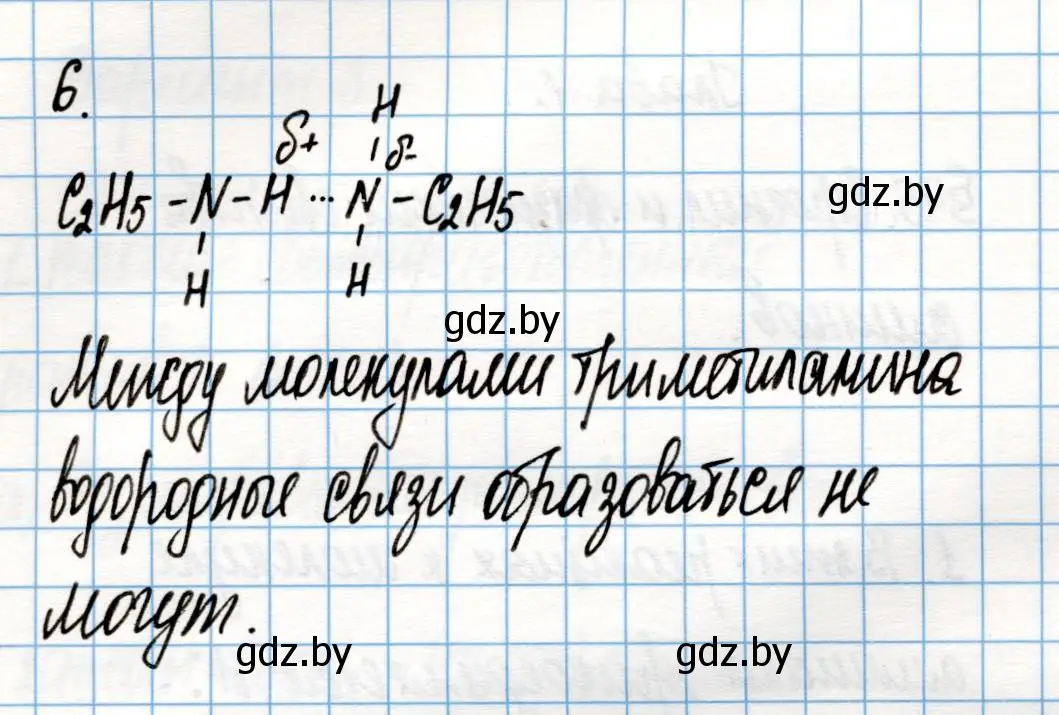 6.
H
δ+ δ-
C2H5 - N - H ... N - C2H5
gdz.by
H H
gdz.by
Между молекулами триметиламина
водородные связи образоваться не
могут.
gdz.by gdz.by